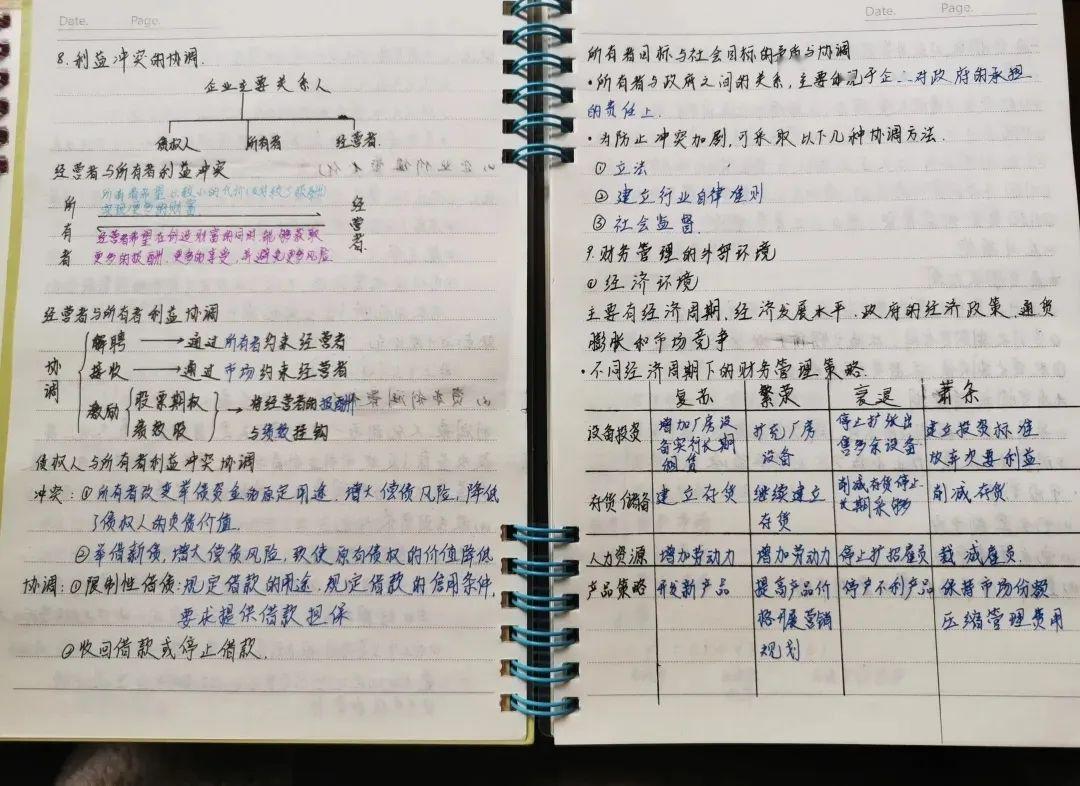 Date. Page.
8.利益冲突的协调.
企业主要关系人
债权人 所有者 经营者.
经营者与所有者利益冲突
所有者希望以较小的代价(支付较少报酬)
实现更多的财富.
所有者
经营者.
经营者希望在创造财富的同时,能够获取
更多的报酬、更多的享受,并避免更多风险
经营者与所有者利益协调
协调
解聘 → 通过所有者约束经营者
接收 → 通过市场约束经营者
激励
股票期权
绩效股
→ 将经营者的报酬
与绩效挂钩
债权人与所有者利益冲突协调
冲突:①所有者改变举债资金的原定用途,增大偿债风险,降低
了债权人的负债价值.
②举借新债,增大偿债风险,致使原有债权的价值降低
协调:①限制性借债:规定借款的用途、规定借款的信用条件,
要求提供借款担保
②收回借款或停止借款.
Date. Page.
所有者目标与社会目标的矛盾与协调
·所有者与政府之间的关系,主要体现于企 对政府的承担
的责任上.
·为防止冲突加剧,可采取以下几种协调方法.
①立法
②建立行业自律准则
③社会监督.
9.财务管理的外部环境
①经济环境
主要有经济周期、经济发展水平、政府的经济政策、通货
膨胀和市场竞争
·不同经济周期下的财务管理策略.
复苏 繁荣 衰退 萧条
设备投资 增加厂房设备实行长期租赁 扩充厂房设备 停止扩张出售多余设备 建立投资标准放弃次要利益
存货储备 建立存货 继续建立存货 削减存货停止长期采购 削减存货
人力资源 增加劳动力 增加劳动力 停止扩招雇员 裁减雇员
产品策略 开发新产品 提高产品价格开展营销规划 停产不利产品 保持市场份额压缩管理费用